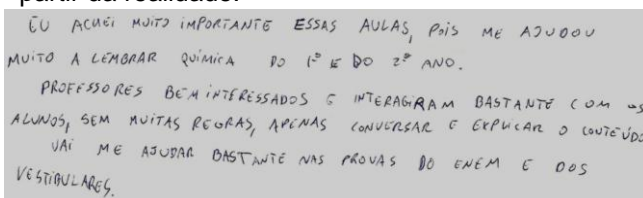 partir da realidade.
EU ACHEI MUITO IMPORTANTE ESSAS AULAS, POIS ME AJUDOU
MUITO A LEMBRAR QUÍMICA DO 1º E DO 2º ANO.
PROFESSORES BEM INTERESSADOS E INTERAGIRAM BASTANTE COM OS
ALUNOS, SEM MUITAS REGRAS, APENAS CONVERSAR E EXPLICAR O CONTEÚDO
VAI ME AJUDAR BASTANTE NAS PROVAS DO ENEM E DOS
VESTIBULARES.